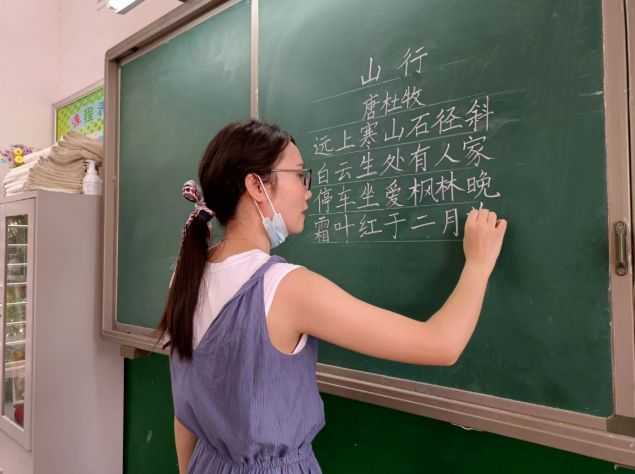 山行
唐杜牧
远上寒山石径斜
白云生处有人家
停车坐爱枫林晚
霜叶红于二月
课程